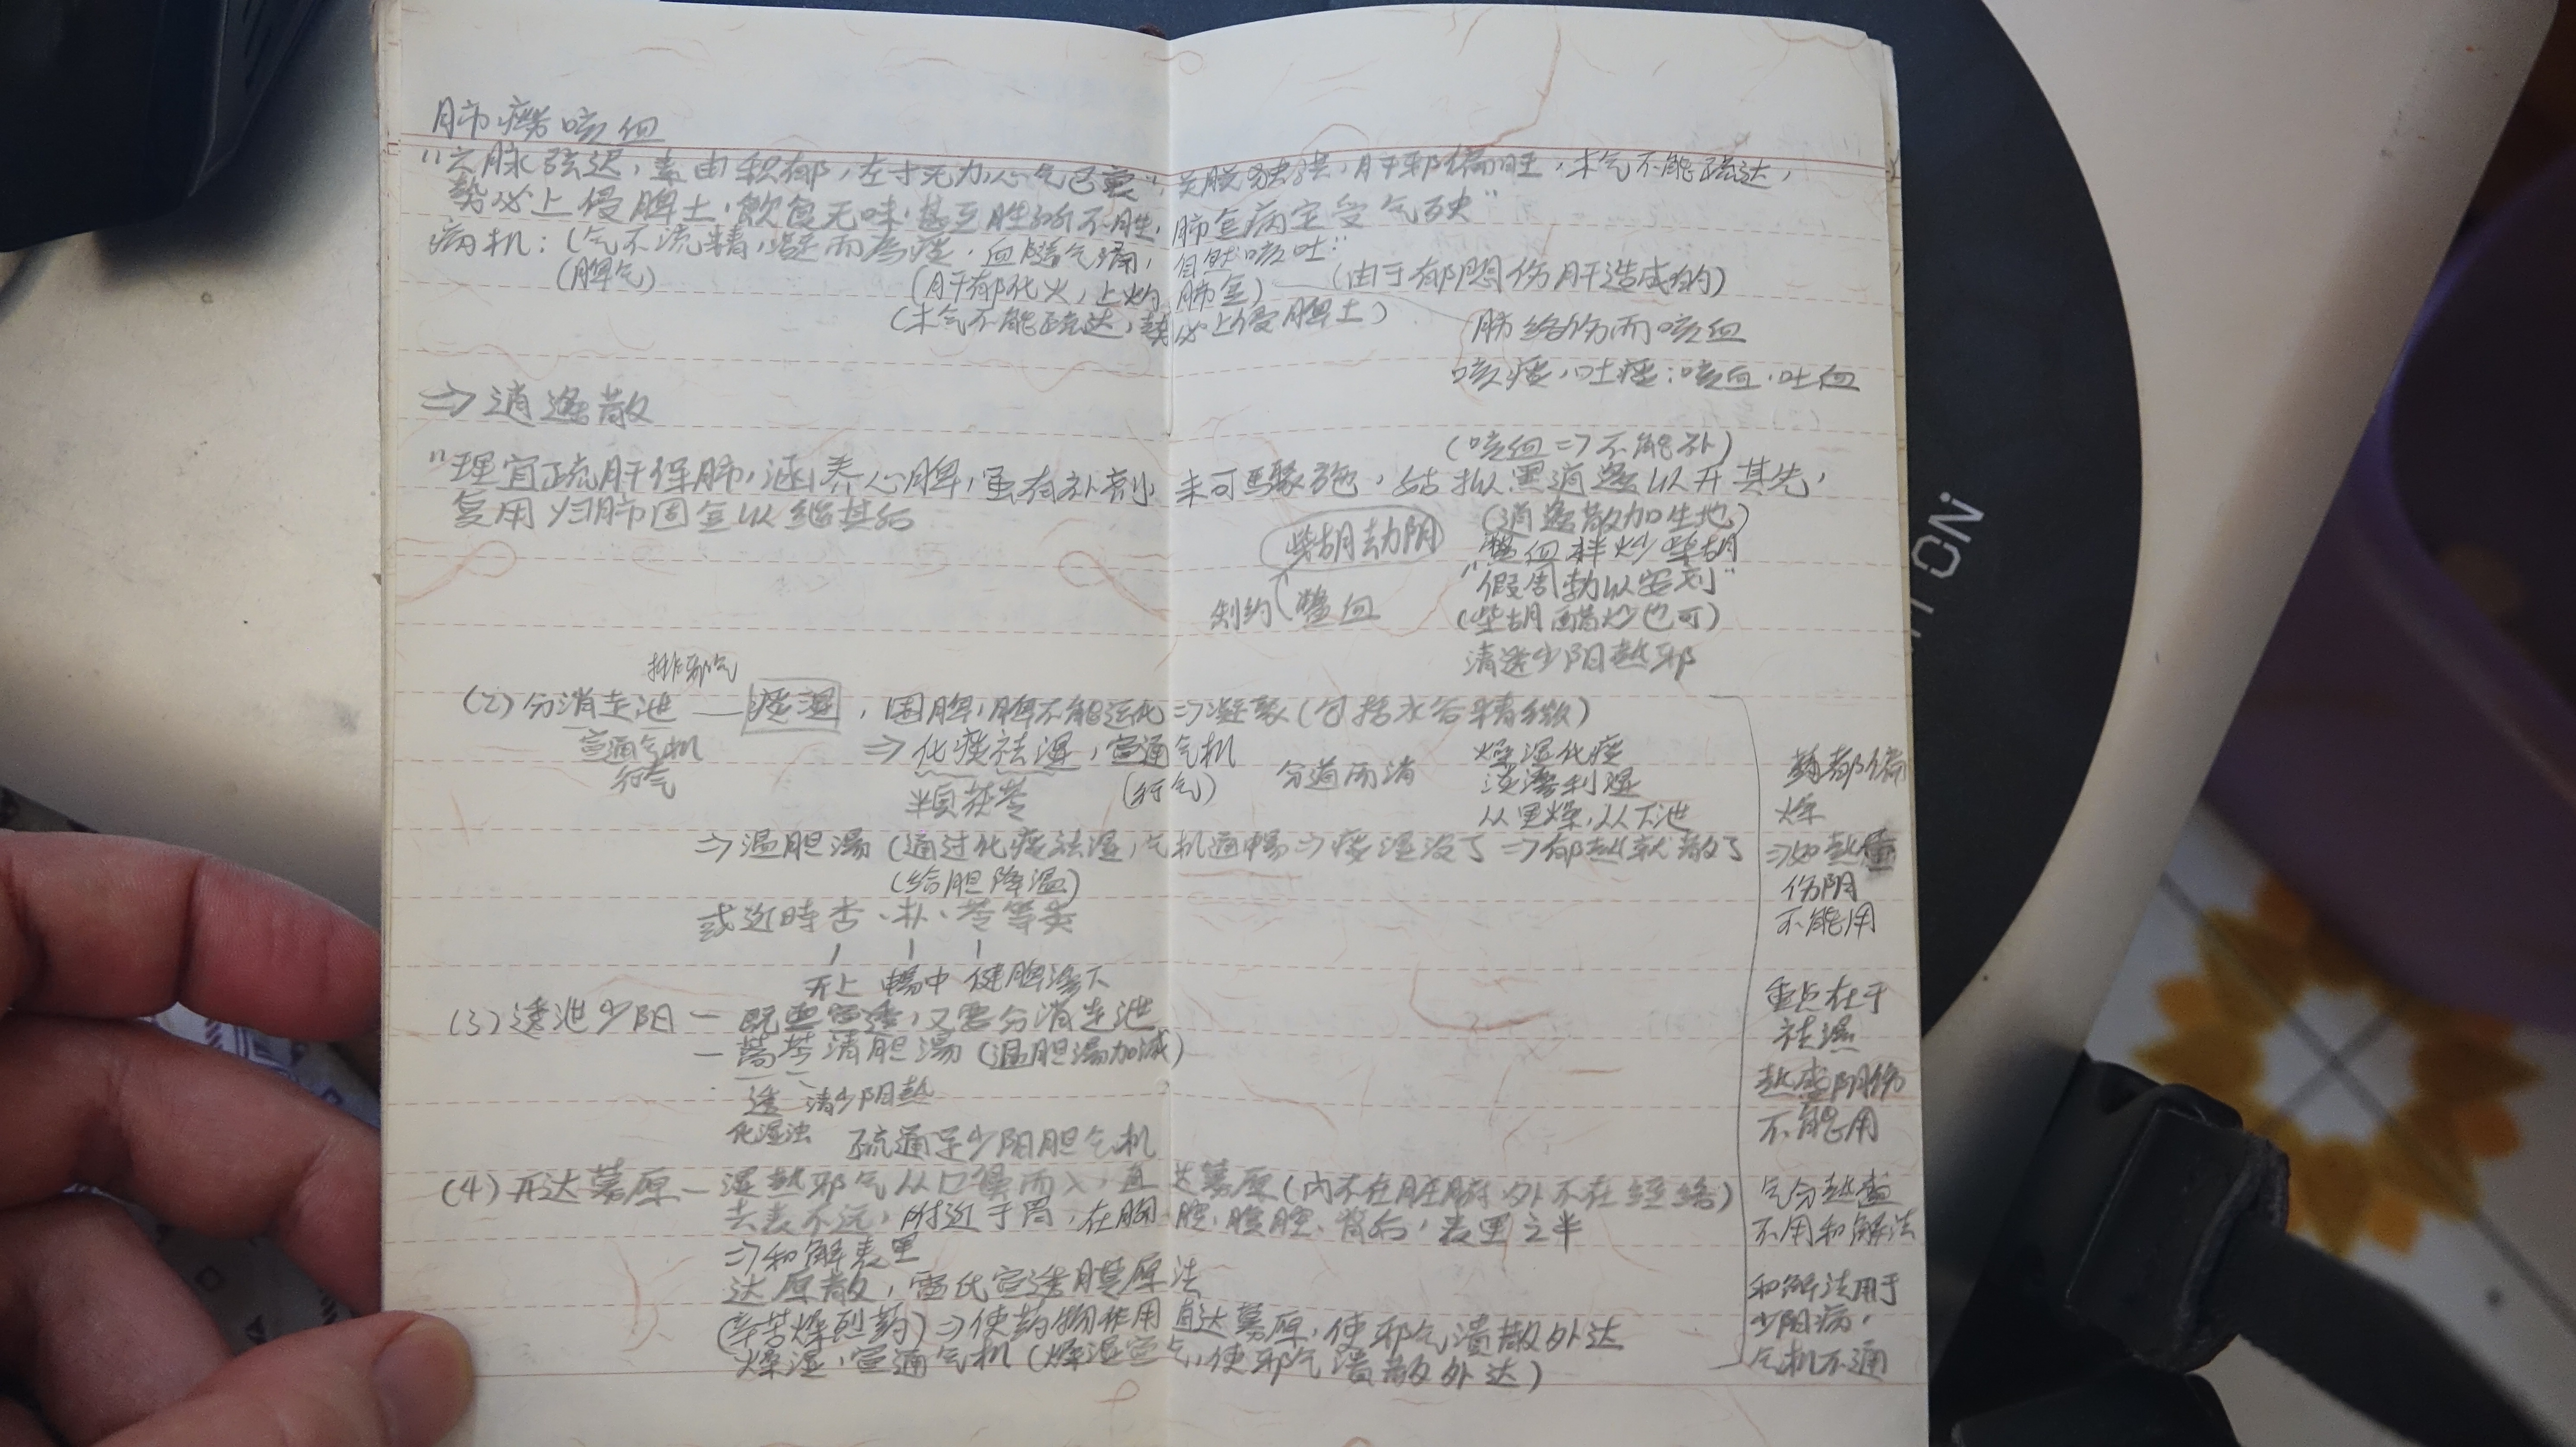 肺痨咳血
"六脉弦迟，素由积郁，左寸无力，心气已衰"，关脉独弦，肝邪偏旺，木气不能疏达，
势必上侵脾土，飲食无味，甚至脏腑不胜，肺金病定受气硬"
病机：(气不流精，凝而为痰，血随气涌，自然咳吐"
(脾气)
(肝郁化火，上灼肺金) — (由于郁闷伤肝造成的)
(木气不能疏达，势必上侵脾土)
肺络伤而咳血
咳痰，吐痰：咳血，吐血
⇒ 逍遥散
(咳血 ⇒ 不能补)
"理宜疏肝保肺，涵养心脾，虽有补剂，未可骤施，姑拟黑逍遥以开其先，
复用归肺固金以继其后
(逍遥散加生地)
柴胡劫阴
鳖血拌炒柴胡
"假周勃以安刘"
制约 (鳖血
(柴胡醋炒也可)
清透少阳热邪
排邪气
(2)分消走泄 — 痰湿，困脾，脾不能运化 ⇒ 凝聚(包括水谷精微)
宣通气机
行气
⇒ 化痰祛湿，宣通气机
半夏茯苓
(行气)
分道而消
燥湿化痰
淡渗利湿
从里燥，从下泄
⇒ 温胆湯(通过化痰祛湿，气机通暢 ⇒ 痰湿没了 ⇒ 郁热就散了
(给胆降温)
或近時杏、朴、苓等类
开上 暢中 健脾渗下
(3)透泄少阳 — 既要宣透，又需分消走泄
— 蒿芩清胆湯(温胆湯加减)
透 清少阳热
化湿浊
疏通足少阳胆气机
(4)开达募原 — 湿热邪气从口鼻而入，直达募原(内不在脏腑 外不在经络)
去表不远，附近于胃，在胸腔，腹腔，背后，表里之半
⇒ 和解表里
达原散，雷氏宣透膜原法
(辛苦燥烈药) ⇒ 使药物作用直达募原，使邪气溃散外达
燥湿，宣通气机(燥湿宣气，使邪气溃散外达)
药都偏
燥
⇒ 如热重
伤阴
不能用
重点在于
祛湿
热盛阴伤
不能用
气分热盛
不用和解法
和解法用于
少阳病，
气机不通